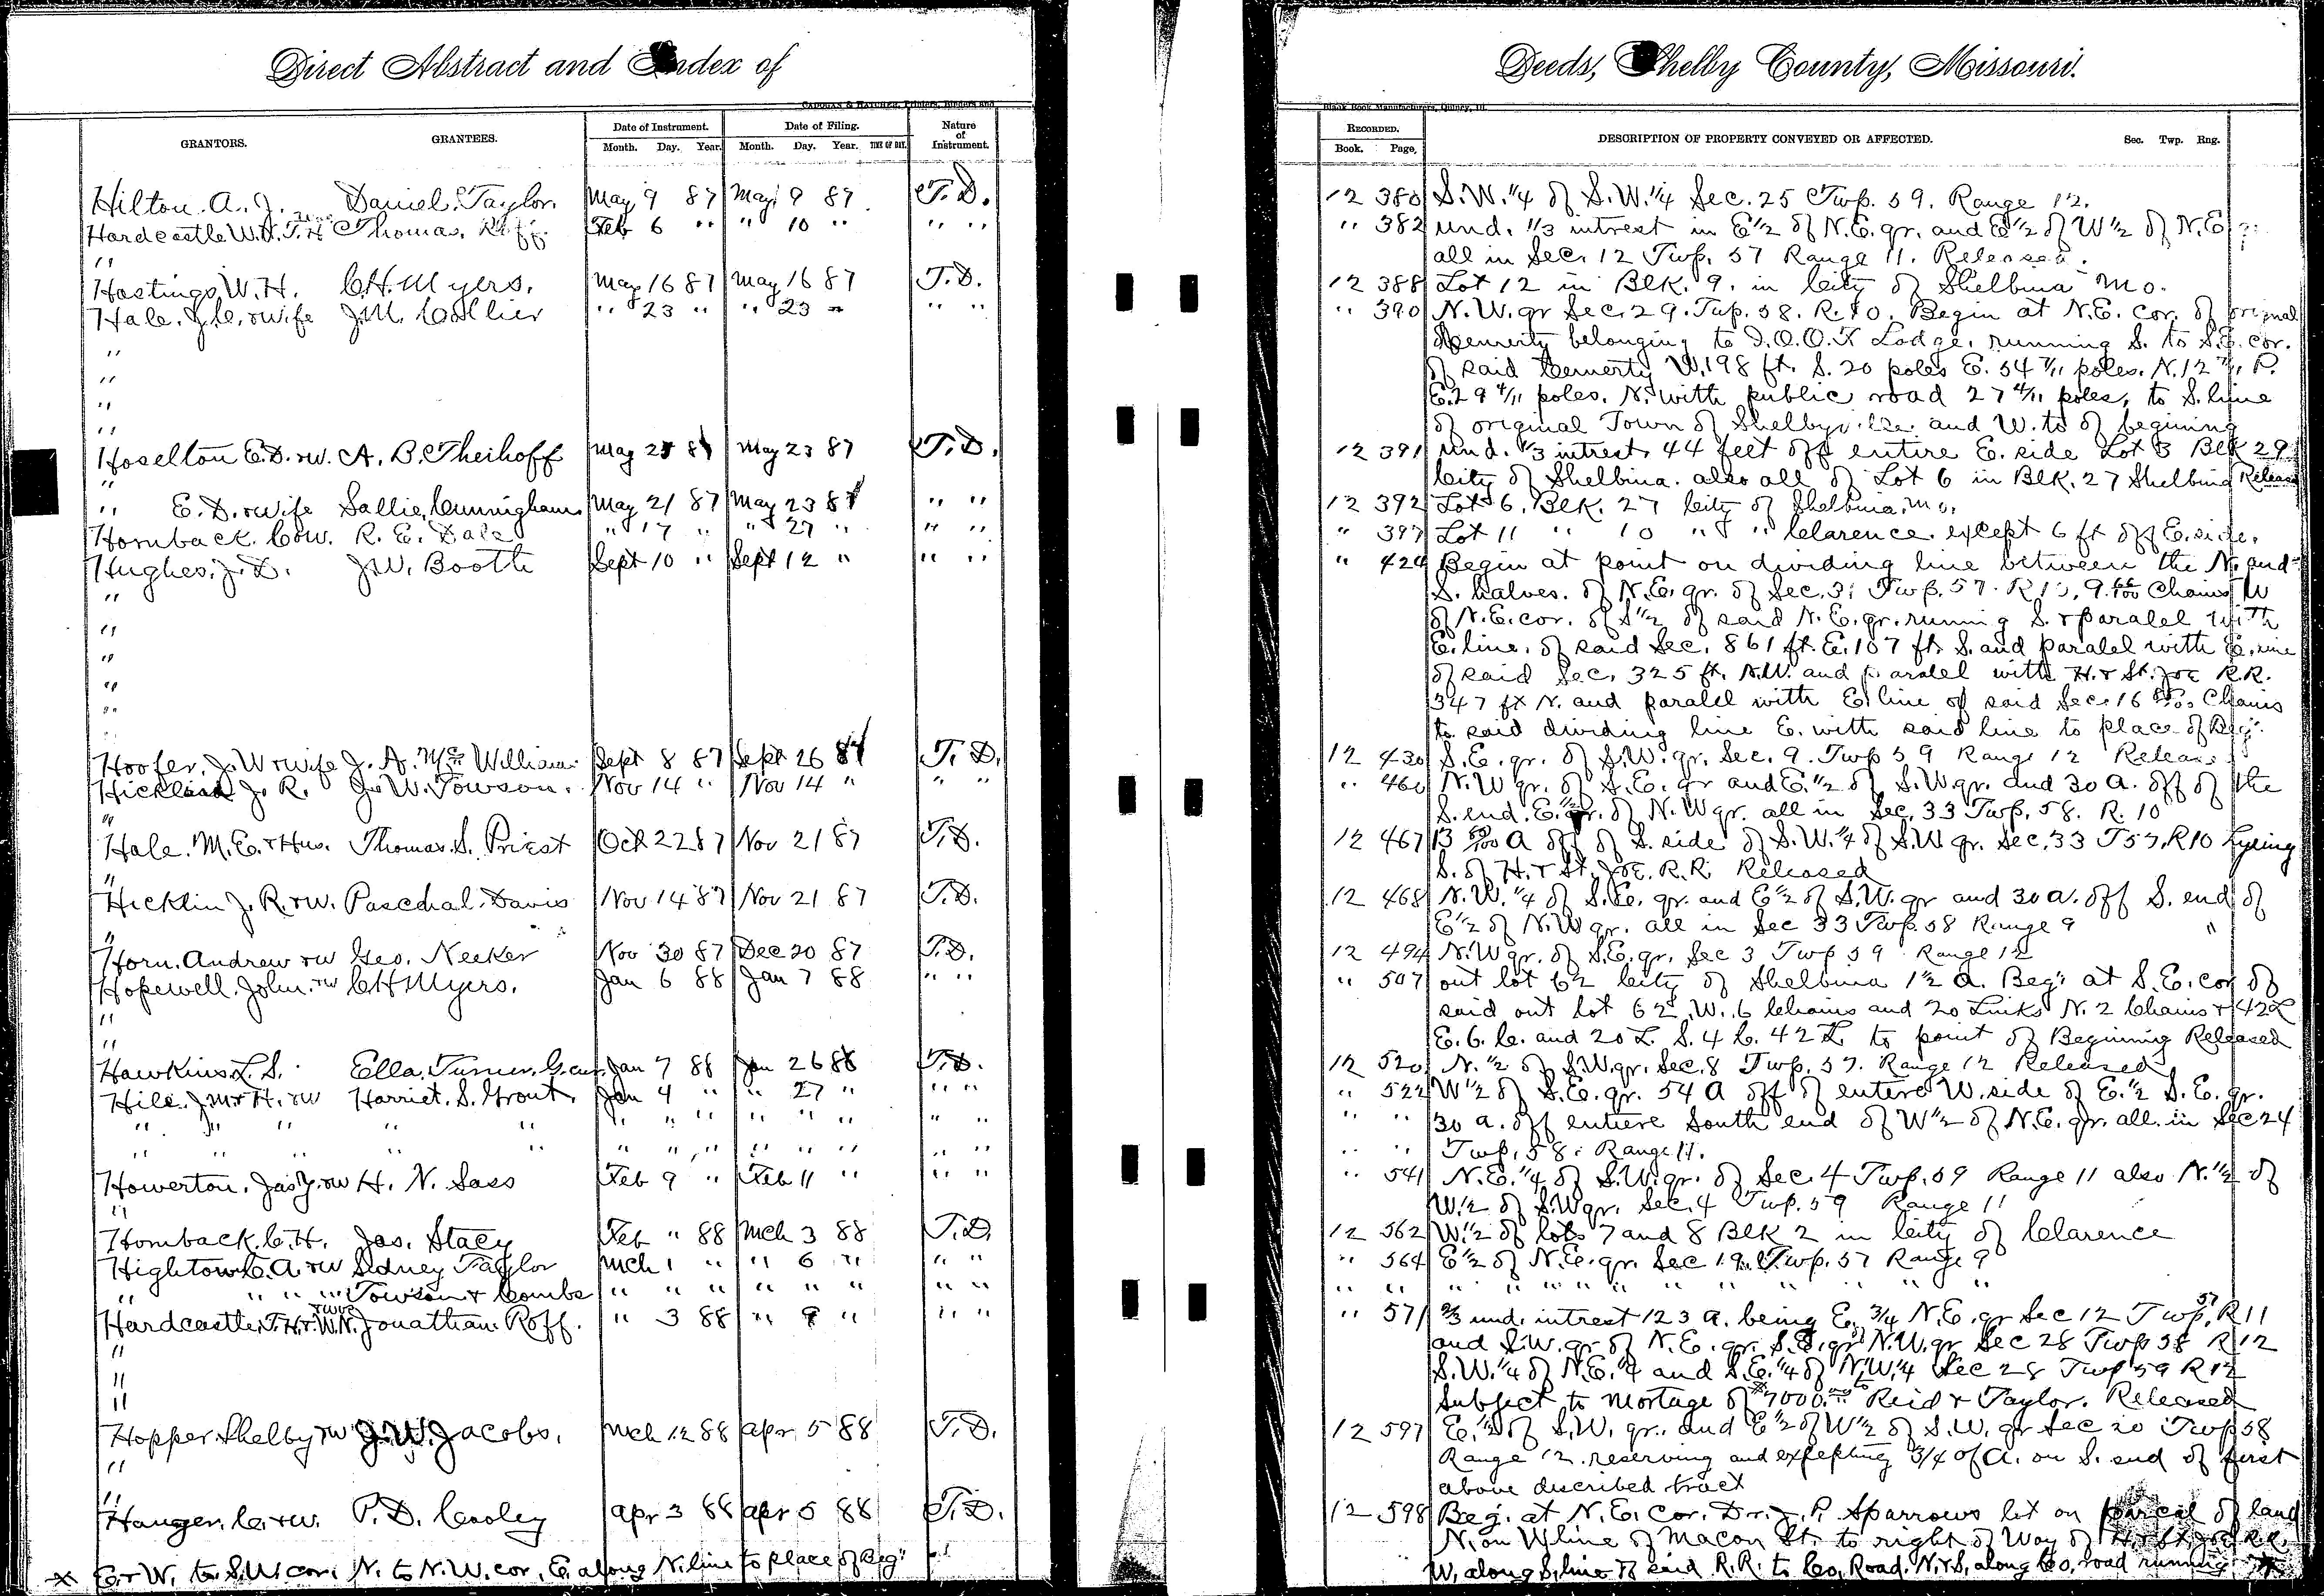 Direct Abstract and Index of
Deeds, Shelby County, Missouri.
CADOGAN & HATCHER, Printers, Binders and
Blank Book Manufacturers, Quincy, Ill.
GRANTORS. GRANTEES. Date of Instrument. Month. Day. Year. Date of Filing. Month. Day. Year. TIME OF DAY. Nature of Instrument.
RECORDED. Book. Page. DESCRIPTION OF PROPERTY CONVEYED OR AFFECTED. Sec. Twp. Rng.
Hilton. A. J. Daniel Taylor. May 9 87 May 9 87 T.D. 12 380 S.W. 1/4 of S.W. 1/4 Sec. 25 Twp. 59. Range 12.
Hardcastle W.N. T.H Thomas. Feb 6 " " 10 " " " " 382 und. 1/3 intrest in E 1/2 of N.E. qr. and E 1/2 of W 1/2 of N.E
" all in Sec. 12 Twp. 57 Range 11. Released.
Hastings W. H. C.H. Myers. May 16 87 May 16 87 T.D. 12 388 Lot 12 in Blk. 9. in City of Shelbina Mo.
Hale. J.C. & wife J.M. Collier " 23 " " 23 " " " " 390 N.W. qr Sec. 29. Twp. 58. R. 10. Begin at N.E. cor. of orignal
" belonging to I.O.O.F Lodge, running S. to S.E. cor.
" of said Cemerty W. 198 ft. S. 20 poles E. 54 7/11 poles. N. 12 7/11 P.
" E. 29 4/11 poles. N. with public road 27 4/11 poles, to S. line
" of original Town of Shelbyville and W. to of begining
Hoselton E.D. & w. A. B. Theihoff May 87 May 23 87 T.D. 12 391 und. 1/3 intrest. 44 feet off entire E. side Lot 3 Blk 29
" City of Shelbina. also all of Lot 6 in Blk. 27 Shelbina Released
" E. D. & wife Sallie. Cunningham May 21 87 May 23 87 " " 12 392 Lot 6. Blk. 27 City of Shelbina. Mo.
Hornback. C. & w. R. E. Dale " 17 " " 27 " " " " 397 Lot 11 " 10 " " " Clarence. except 6 ft off E. side.
Hughes. J. D. J.W. Booth Sept 10 " Sept 12 " " " " 424 Begin at point on dividing line between the N. and
" S. halves. of N.E. qr. of Sec. 31 Twp. 57. R 10, 9. Chains W
" of N.E. cor. of S 1/2 of said N.E. qr. running S. & paralel with
" E. line. of said Sec. 861 ft. E. 107 ft. S. and paralel with E. line
" of said Sec. 325 ft. N.W. and paralel with H. & St. Joe R.R.
" 347 ft N. and paralel with E. line of said Sec. 16 Chains
to said dividing line E. with said line to place of Beg".
Hoofer. J. W & wife J. A. McWilliams Sept 8 87 Sept 26 87 T.D. 12 430 S.E. qr. of S.W. qr. Sec. 9. Twp 59 Range 12 Released
Hicklin J. R. J. W. Towson. Nov 14 " Nov 14 " " " " 460 N.W qr. of S.E. qr and E. 1/2 of S.W qr. and 30 A. off of the
" S. end. E. 1/2 of N.W qr. all in Sec. 33 Twp. 58. R. 10
Hale. M.E. & Hus. Thomas. S. Priest Oct 22 87 Nov 21 87 T.D. 12 467 13 A off of S. side of S.W. 1/4 of S.W qr. Sec. 33 T 57. R 10 Lyeing
" S. of H. & St. Joe. R.R. Released
Hicklin J. R. & w. Paschal. Davis Nov 14 87 Nov 21 87 T.D. 12 468 N.W. 1/4 of S.E. qr. and E 1/2 of S.W. qr and 30 a. off S. end of
" E 1/2 of N.W qr. all in Sec 33 Twp. 58 Range 9 "
Horn. Andrew & w Geo. Neeker Nov 30 87 Dec 20 87 T.D. 12 494 N.W qr. of S.E. qr. Sec 3 Twp 59 Range 12
Hopewell. John. & w C H Myers. Jan 6 88 Jan 7 88 " " " 507 out lot 62 City of Shelbina 1 1/2 A. Beg" at S.E. cor of
" said out lot 62. W. 6 Chains and 20 Links N. 2 Chains & 42 L
" E. 6. C. and 20 L. S. 4 C. 42 L. to point of Beginning Released
Hawkins. L. S. Ella. Turner. G. cur. Jan 7 88 Jan 26 88 T.D. 12 520 N. 1/2 of S.W. qr. Sec. 8 Twp. 57. Range 12 Released
Hill. J.M. & H. & w Harriet. S. Grout. Jan 4 " " 27 " " " " 522 W 1/2 of S.E. qr. 54 A off of entere W. side of E. 1/2 S.E. qr.
" " " " " " " " " " " " " " " 30 a. off entiere South end of W 1/2 of N.E. qr. all in Sec 24
" " " " " " " " " " " " " " " Twp. 58. Range 11.
Howerton. Jas. J. & w H. N. Sass Feb 9 " Feb 11 " " " " 541 N.E. 1/4 of S.W. qr. of Sec. 4 Twp. 59 Range 11 also N. 1/2 of
" W. 1/2 of S.W qr. Sec. 4 Twp. 59 Range 11
Hornback. C. H. Jas. Stacy Feb " 88 Mch 3 88 T.D. 12 562 W. 1/2 of lots 7 and 8 Blk 2 in City of Clarence
Hightow C. A. & w Sidney Taylor Mch 1 " " 6 " " " " 564 E 1/2 of N.E. qr. Sec 19. Twp. 57 Range 9
" " " " Towson & Combs " " " " " " " " " " " " " " " " " " "
Hardcastle. T.H. & W.N. & wives Jonathan. Roff. " 3 88 " 9 " " " " 571 2/3 und. intrest 123 a. being E. 3/4 N.E. qr Sec 12 Twp. 57 R 11
" and S.W. qr of N.E. qr. S.E. qr of N.W. qr Sec 28 Twp 58 R 12
" S.W. 1/4 of N.E. 1/4 and S.E. 1/4 of N.W. 1/4 Sec 28 Twp 59 R 12
" Subject to Mortage of $7000.00 to Reid & Taylor. Released
Hopper. Shelby & w J. W. Jacobs. Mch 12 88 Apr 5 88 T.D. 12 597 E. 1/2 of S.W. qr. and E 1/2 of W 1/2 of S.W. qr Sec 20 Twp 58
" Range 12. reserving and exfepting 3/4 of A. on S. end of first
" above discribed tract
Hanger. C. & w. P. D. Cooley Apr 3 88 Apr 5 88 T.D. 12 598 Beg. at N.E. Cor. Dr. J. P. Sparrows lot on parcal of land
N. on W line of Macon St. to right of Way of H. & St. Joe R.R.
W. along S. line of said R.R. to Co. Road. N. & S. along Co. road running *
* E. & W. to S.W. cor. N. to N.W. cor. E. along N. line to place of Beg"